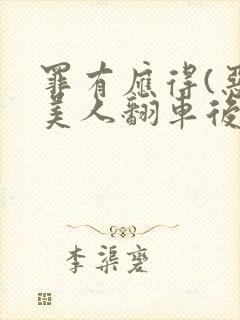 罪有應得(惡
美人翻車後
李渠蓌